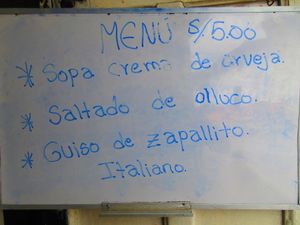 MENÚ S/5.00
* Sopa crema de arveja.
* Saltado de olluco.
* Guiso de zapallito.
Italiano.